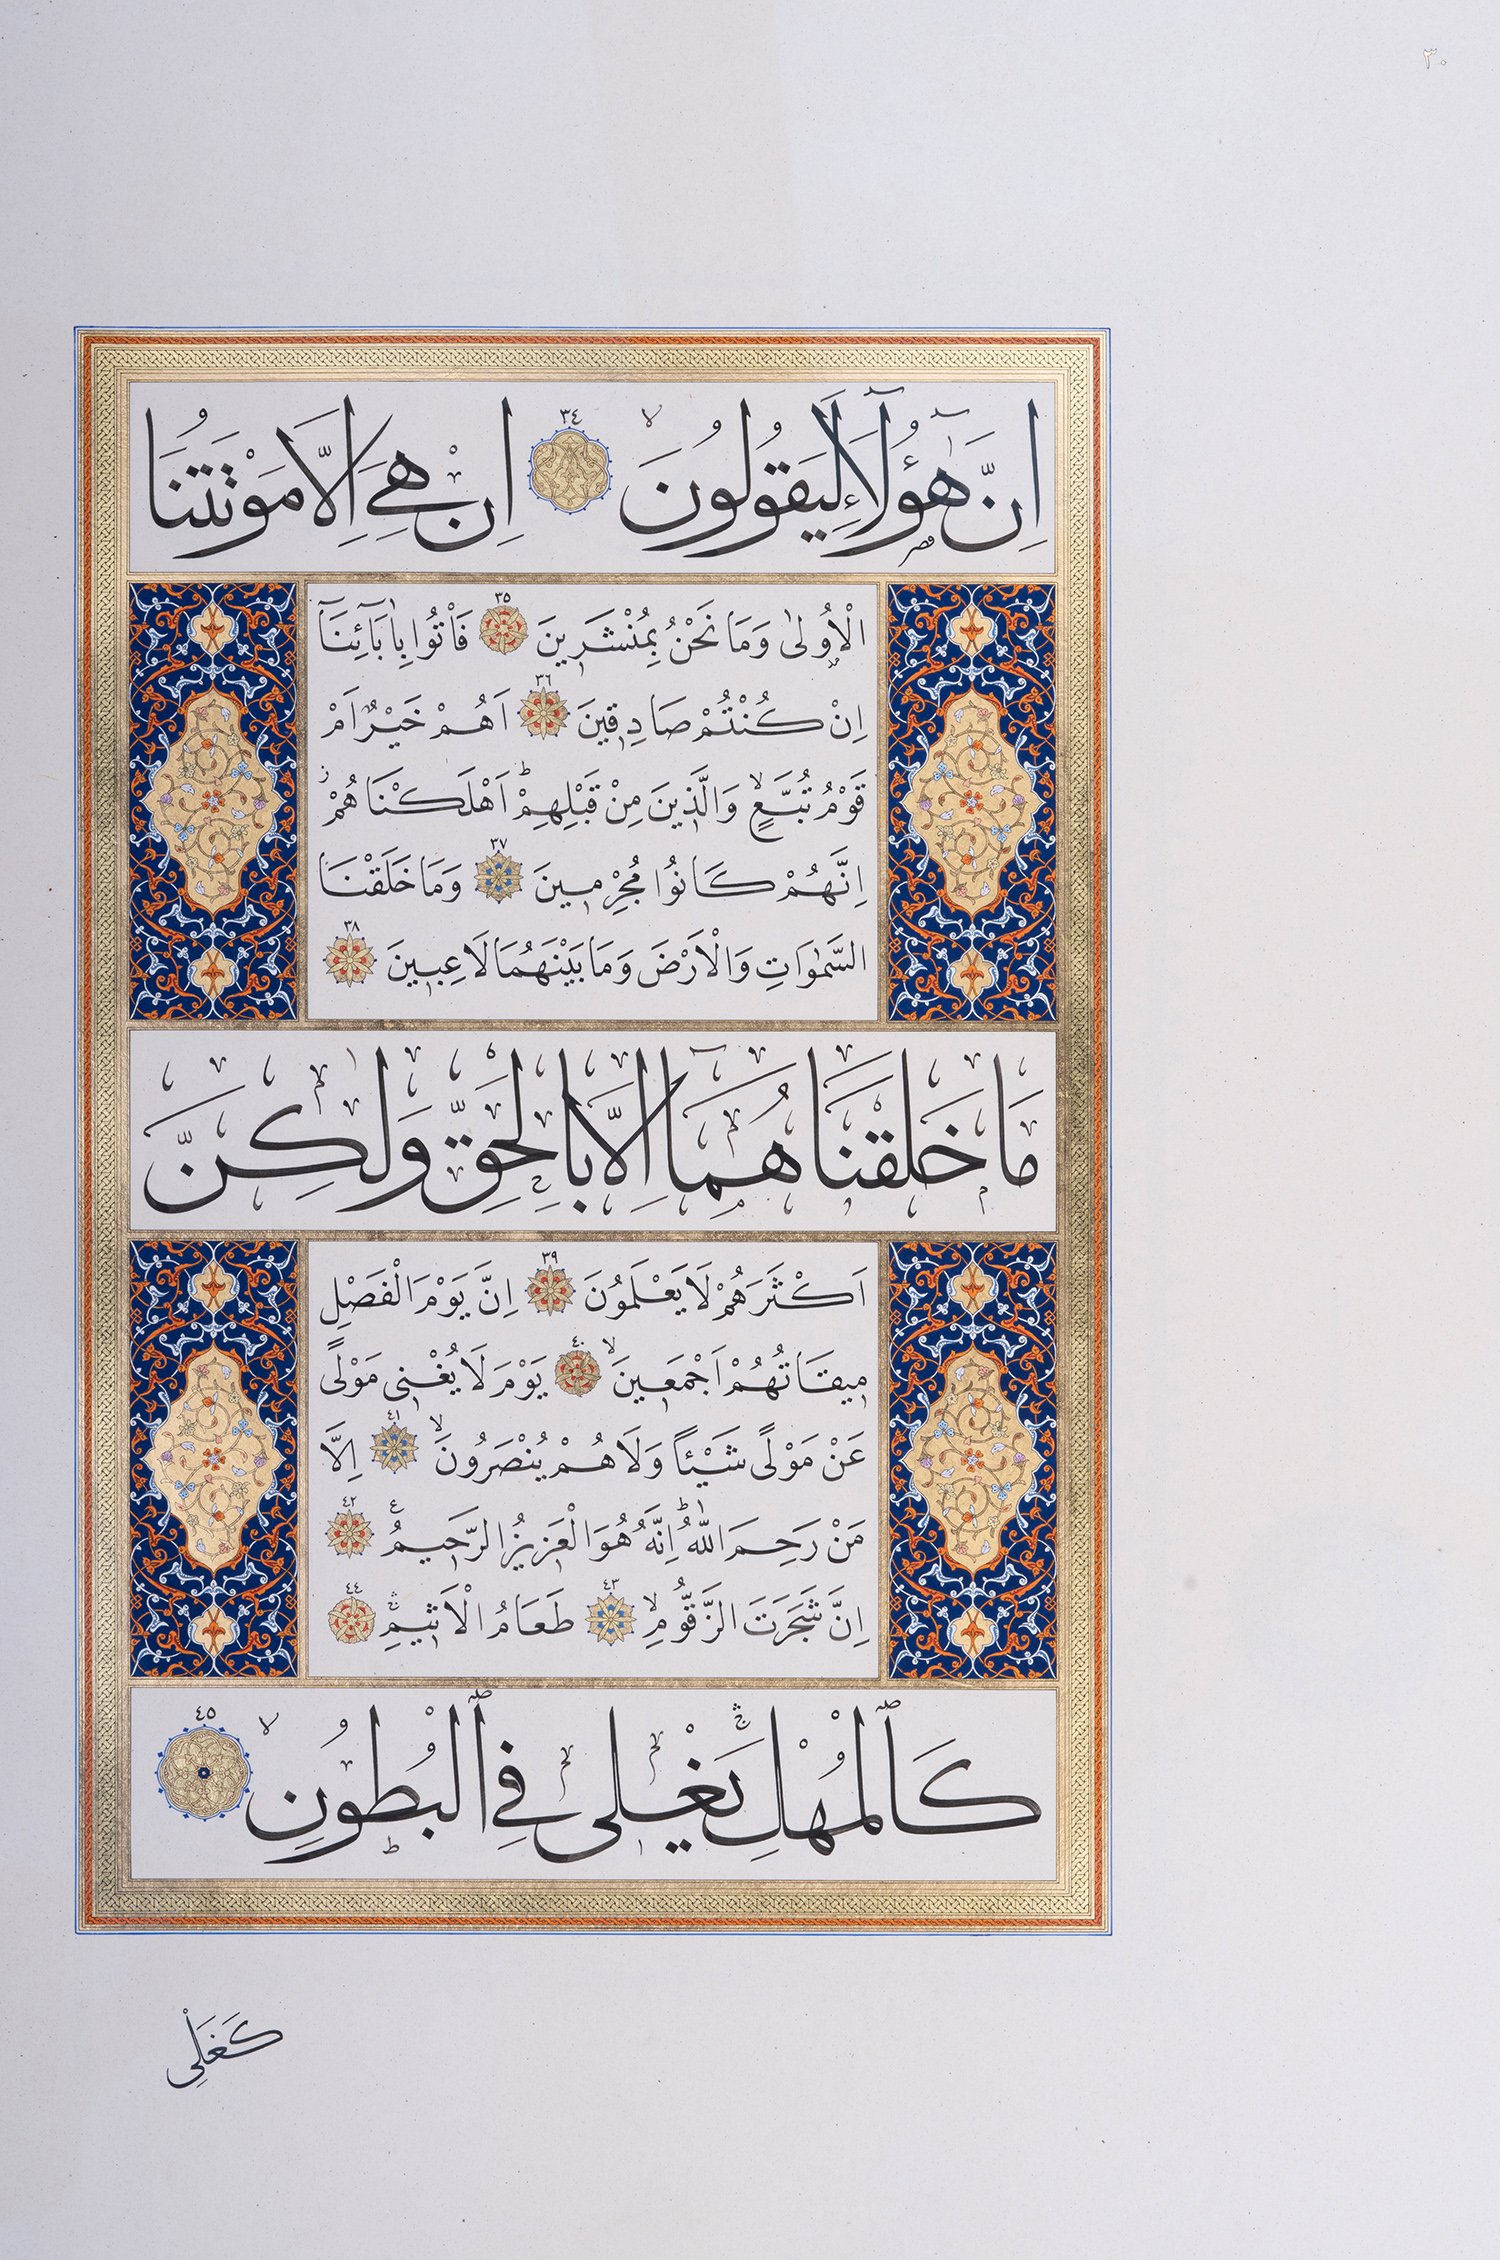 ٣٠
اِنَّ هٰٓؤُلَٓاءِ لَيَقُولُونَۙ ٣٤ اِنْ هِيَ اِلَّا مَوْتَتُنَا
الْاُو۫لٰى وَمَا نَحْنُ بِمُنْشَر۪ينَ ٣٥ فَاْتُوا بِاٰبَٓائِنَٓا
اِنْ كُنْتُمْ صَادِق۪ينَ ٣٦ اَهُمْ خَيْرٌ اَمْ
قَوْمُ تُبَّعٍۙ وَالَّذ۪ينَ مِنْ قَبْلِهِمْؕ اَهْلَكْنَاهُمْؗ
اِنَّهُمْ كَانُوا مُجْرِم۪ينَ ٣٧ وَمَا خَلَقْنَا
السَّمٰوَاتِ وَالْاَرْضَ وَمَا بَيْنَهُمَا لَاعِب۪ينَ ٣٨
مَا خَلَقْنَاهُمَٓا اِلَّا بِالْحَقِّ وَلٰكِنَّ
اَكْثَرَهُمْ لَا يَعْلَمُونَ ٣٩ اِنَّ يَوْمَ الْفَصْلِ
م۪يقَاتُهُمْ اَجْمَع۪ينَۙ ٤٠ يَوْمَ لَا يُغْن۪ي مَوْلًى
عَنْ مَوْلًى شَيْـًٔا وَلَا هُمْ يُنْصَرُونَۙ ٤١ اِلَّا
مَنْ رَحِمَ اللّٰهُؕ اِنَّهُ هُوَ الْعَز۪يزُ الرَّح۪يمُ ع ٤٢
اِنَّ شَجَرَتَ الزَّقُّومِۙ ٤٣ طَعَامُ الْاَث۪يمِۛ ٤٤
كَالْمُهْلِۛ يَغْل۪ي فِي الْبُطُونِۙ ٤٥
كَغَلْيِ